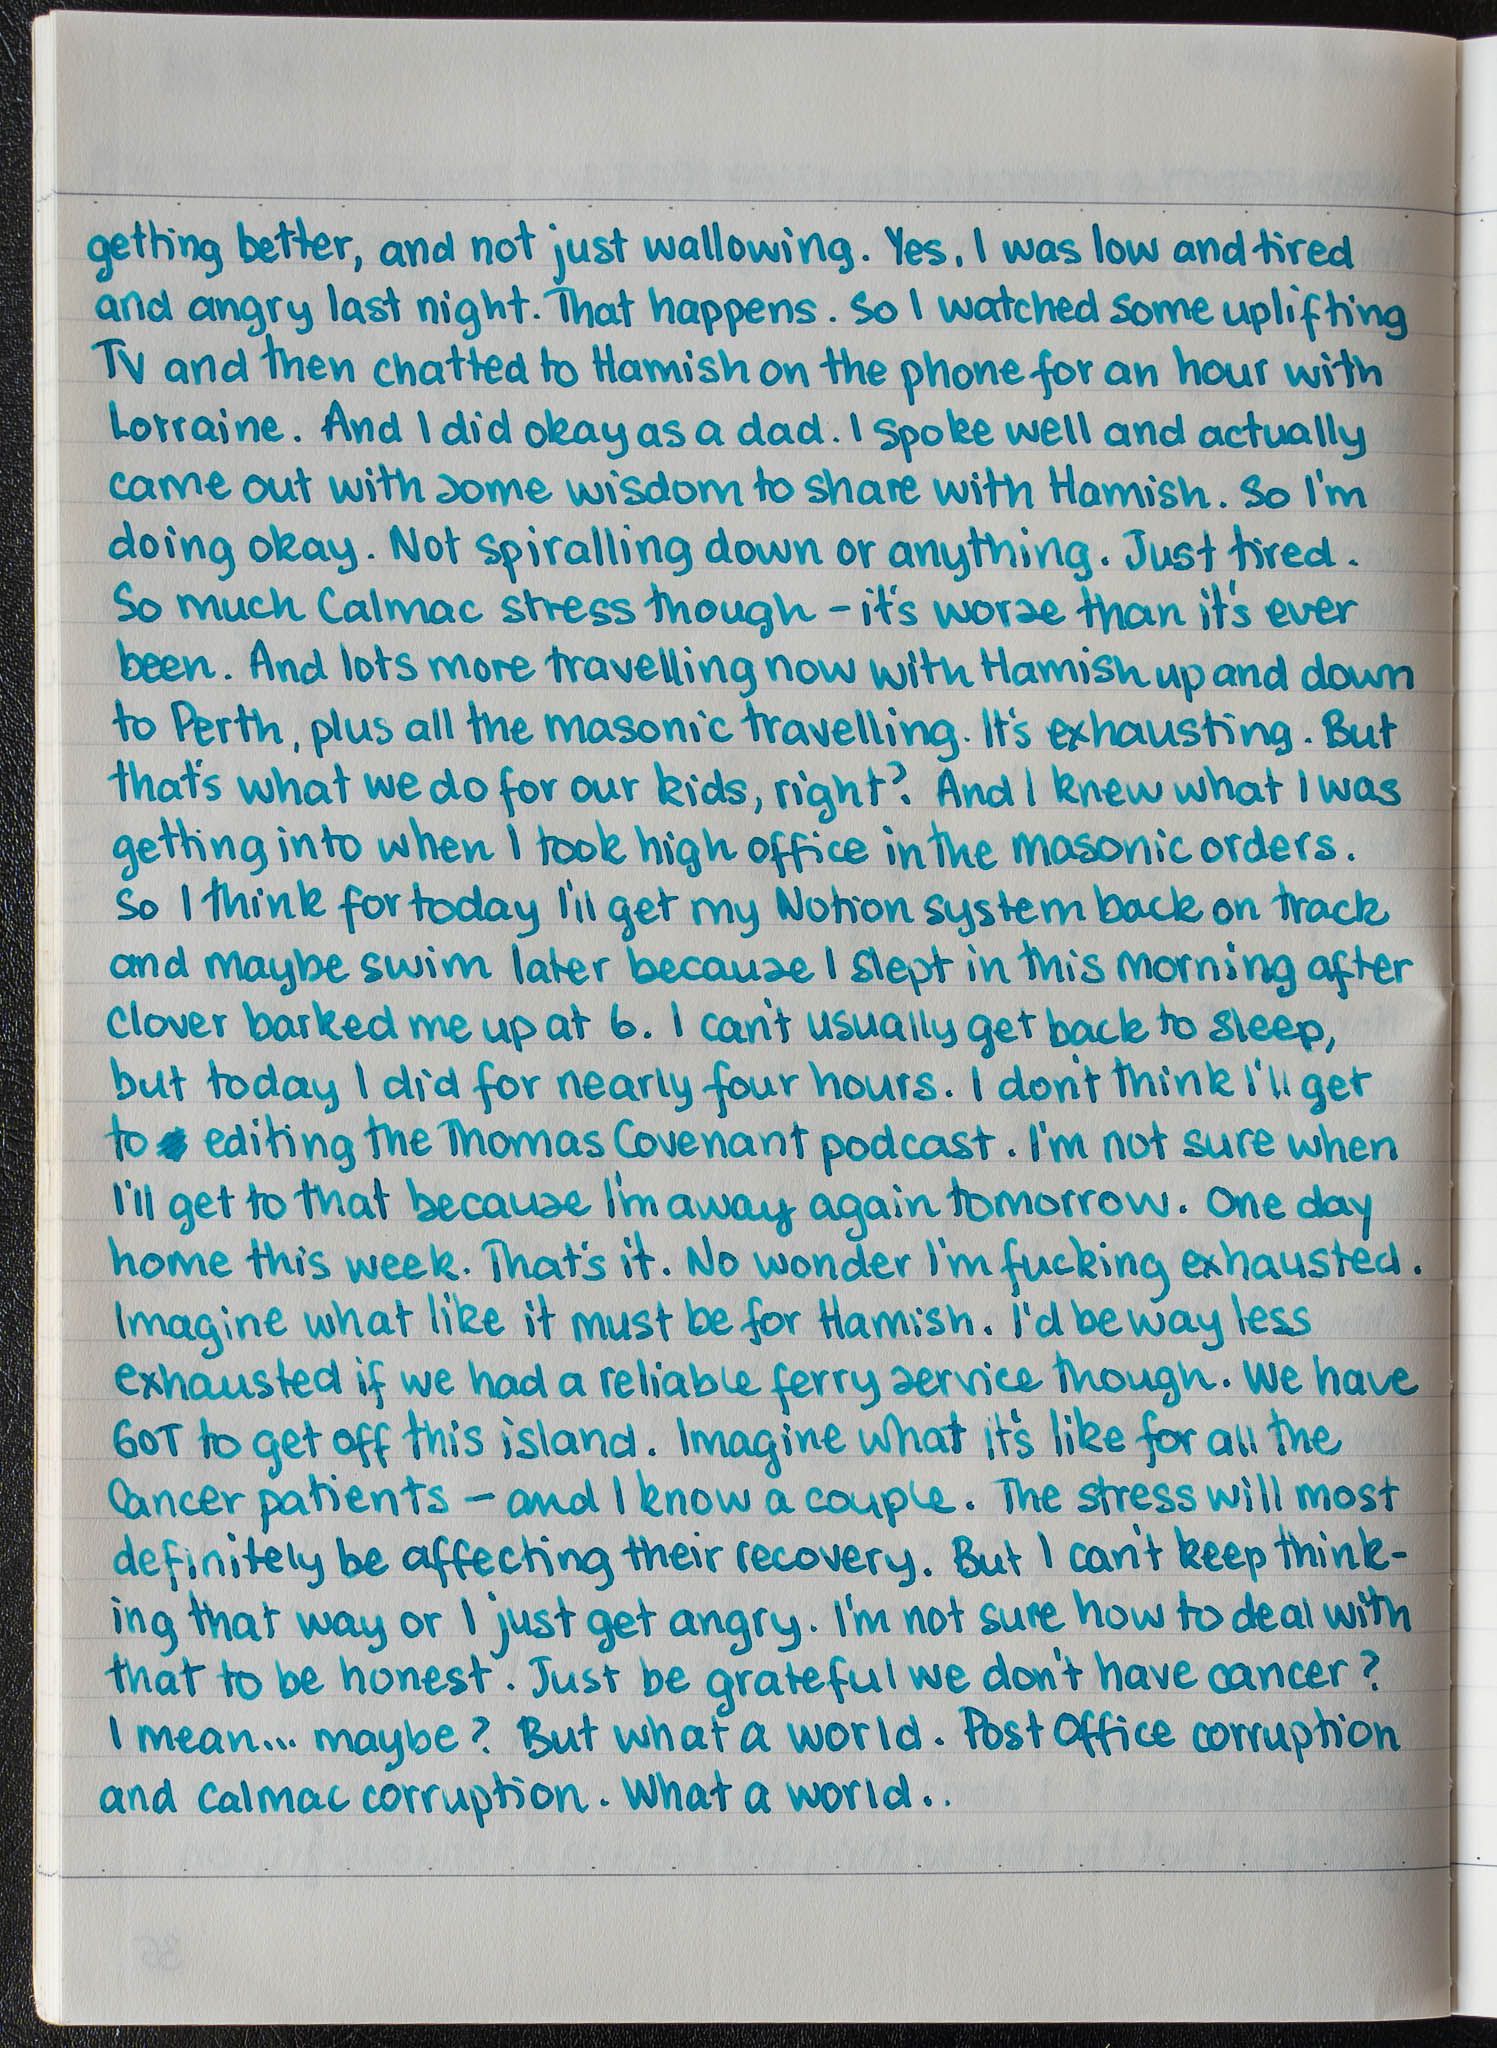 getting better, and not just wallowing. Yes, I was low and tired
and angry last night. That happens. So I watched some uplifting
TV and then chatted to Hamish on the phone for an hour with
Lorraine. And I did okay as a dad. I spoke well and actually
came out with some wisdom to share with Hamish. So I'm
doing okay. Not spiralling down or anything. Just tired.
So much Calmac stress though - it's worse than it's ever
been. And lots more travelling now with Hamish up and down
to Perth, plus all the masonic travelling. It's exhausting. But
that's what we do for our kids, right? And I knew what I was
getting into when I took high office in the masonic orders.
So I think for today I'll get my Notion system back on track
and maybe swim later because I slept in this morning after
Clover barked me up at 6. I can't usually get back to sleep,
but today I did for nearly four hours. I don't think I'll get
to editing the Thomas Covenant podcast. I'm not sure when
I'll get to that because I'm away again tomorrow. One day
home this week. That's it. No wonder I'm fucking exhausted.
Imagine what like it must be for Hamish. I'd be way less
exhausted if we had a reliable ferry service though. We have
GOT to get off this island. Imagine what it's like for all the
Cancer patients - and I know a couple. The stress will most
definitely be affecting their recovery. But I can't keep think-
ing that way or I just get angry. I'm not sure how to deal with
that to be honest. Just be grateful we don't have cancer?
I mean... maybe? But what a world. Post Office corruption
and Calmac corruption. What a world..